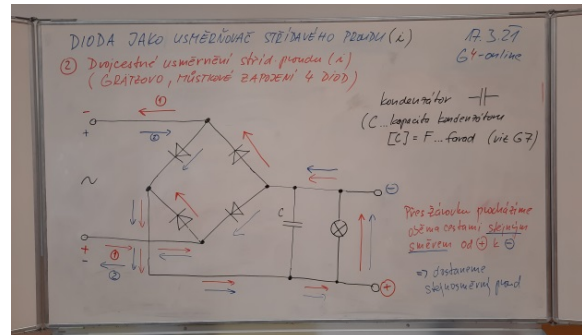 DIODA JAKO USMĚRŇOVAČ STŘÍDAVÉHO PROUDU (i)
17.3.21
G4-online
② Dvojcestné usměrnění stříd. proudu (i)
(GRÄTZOVO, MŮSTKOVÉ ZAPOJENÍ 4 DIOD)
kondenzátor
(C... kapacita kondenzátoru
[C] = F... farad (viz G7)
①
-
+
②
~
C
⊖
+
-
①
②
⊕
Přes žárovku procházíme
oběma cestami stejným
směrem od ⊕ k ⊖
⇒ dostaneme
stejnosměrný proud